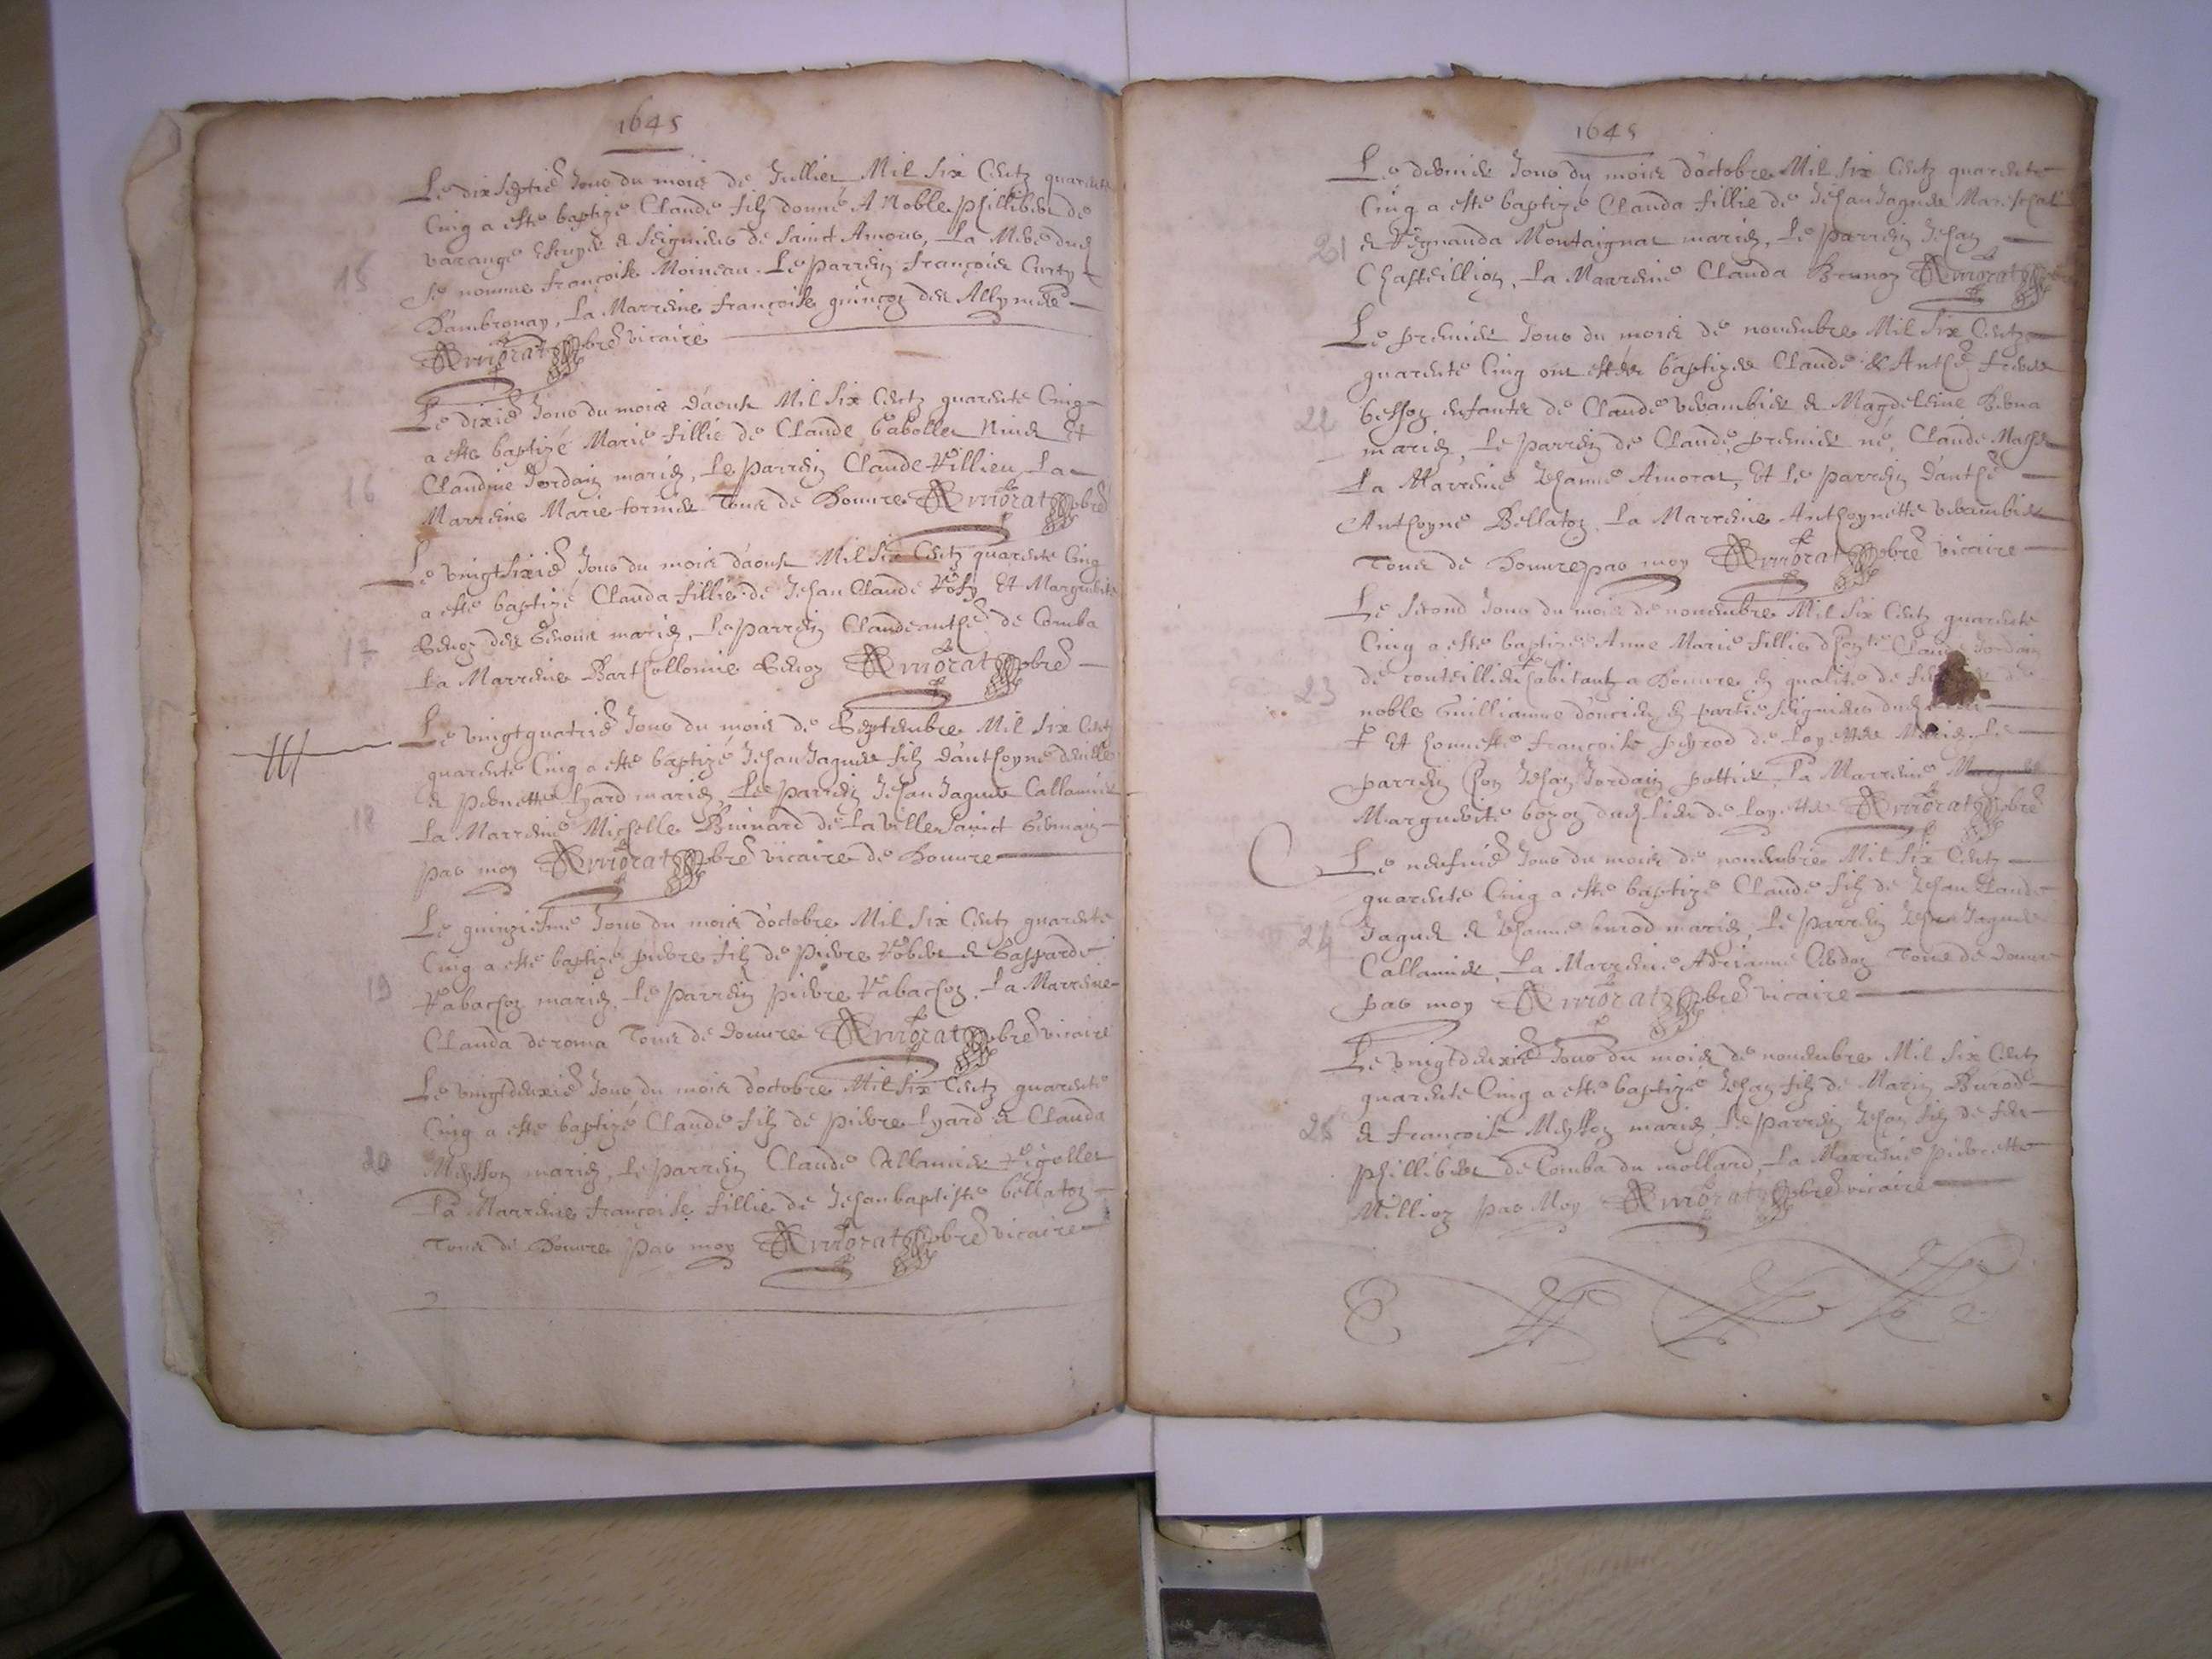 1645
Le dixseptie Jour du mois de Juillet Mil Six Centz quarente
Cinq a esté baptizé Claude filz donné A Noble phillibert de
varange Escuyer & Seigneur de Sainct Amour, La Mere dud
15
se nomme françoise Moineau. Le parrein françois Curty
D'ambronay, La Marreine françoise quinçon des Allymes
Amorat pbre vicaire
Le dixie Jour du mois d'aoust Mil Six Centz quarente Cinq
a esté baptizé Marie fillie de Claude Et
16
Claudine Jordain mariez, Le parrein Claude Villieu, La
Marreine Marie Tous de Douvre Amorat pbre
Le vingtsixie Jour du mois d'aoust Mil Six Centz quarente Cinq
a esté baptizé Clauda fillie de Jehan Claude Et Marguerite
17
mariez, Le parrein Claudeanthe de Comba
La Marreine Bartholomie Amorat pbre
Le vingtquatrie Jour du mois de Septembre Mil Six Centz
quarente Cinq a esté baptizé Jehan Jaques filz d'anthoyne
& pernette Lyard mariez, Le parrein Jehan Jaques Callamier
18
La Marreine Michelle de La ville Sainct Germain
par moy Amorat pbre vicaire de Douvre
Le quinziesme Jour du mois d'octobre Mil Six Centz quarente
Cinq a esté baptizé pierre filz de pierre Robert & Gasparde
19
Rabachon mariez, Le parrein pierre Rabachon, La Marreine
Clauda deroma Tous de Douvre Amorat pbre vicaire
Le vingtdeuxie Jour du mois d'octobre Mil Six Centz quarente
Cinq a esté baptizé Claude filz de pierre Lyard & Clauda
20
Meysson mariez, Le parrein Claude Callamier Rigollet
La Marreine françoise fillie de Jehan baptiste bellaton
Tous de Douvre par moy Amorat pbre vicaire
1645
Le dernier Jour du mois d'octobre Mil Six Centz quarente
Cinq a esté baptizé Clauda fillie de Jehan Jaques Mareschal
21
& Regnauda Montaignat mariez, Le parrein Jehan
Chasteillion, La Marreine Clauda Brunoz Amorat pbre
Le premier Jour du mois de novembre Mil Six Centz
quarente Cinq ont estés baptizes Claude & Anthe freres
22
bessoz enfantz de Claude & Magdeleine
mariez, Le parrein de Claude, premier né, Claude
La Marreine Jehanne Amorat, Et Le parrein d'anthe
Anthoyne Bellaton, La Marreine Anthoynette
Tous de Douvre par moy Amorat pbre vicaire
Le Second Jour du mois de novembre Mil Six Centz quarente
Cinq a esté baptizée Anne Marie fillie Claude Jordain
de habitantz a Douvre en qualité de
23
noble Guilliaume en partie Seigneur dud
Et honneste françoise peyrod de Loyettes Mariez. Le
parrein hon Jehan Jordain pottier, La Marreine
Marguerite bozon dud Lieu de Loyette Amorat pbre
Le neufvie Jour du mois de novembre Mil Six Centz
quarente Cinq a esté baptizé Claude filz de Jehan Claude
24
Jaques & Jehanne burod mariez, Le parrein Jehan Jaques
Callamier, La Marreine Adrianne Tous de Douvre
par moy Amorat pbre vicaire
Le vingtdeuxie Jour du mois de novembre Mil Six Centz
quarente Cinq a esté baptizé Jehan filz de Marin Burod
25
& françoise Meysson mariez, Le parrein Jehan filz de feu
phillibert de Comba du mollard, La Marreine pierrette
Millioz par Moy Amorat pbre vicaire